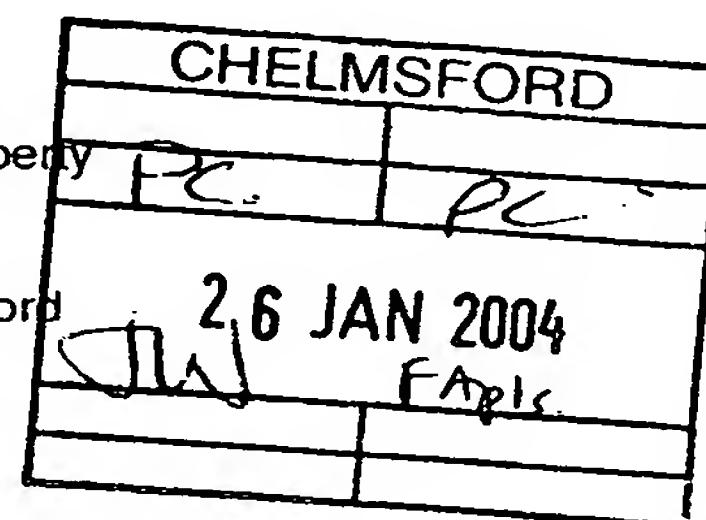 CHELMSFORD
perty
PC. PC.
ord
26 JAN 2004
FA pls.